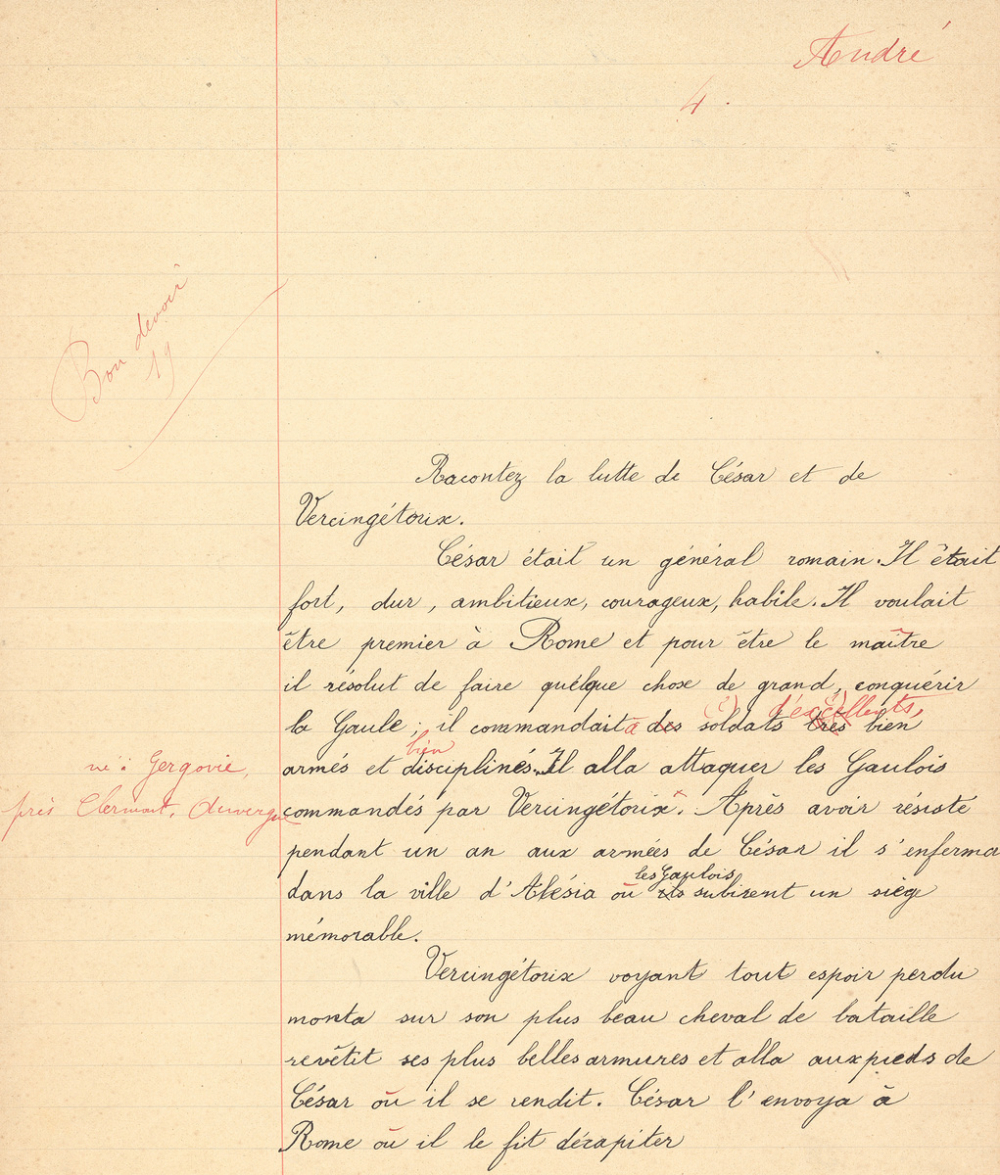 André
4.
Bon devoir
19
Racontez la lutte de César et de
Vercingétorix.
César était un général romain. Il était
fort, dur, ambitieux, courageux, habile. Il voulait
être premier à Rome et pour être le maître
il résolut de faire quelque chose de grand, conquérir
d'excellents,
la Gaule ; il commandait à des soldats très bien
bien
armés et disciplinés. Il alla attaquer les Gaulois
né à Gergovie,
près Clermont, Auvergne
commandés par Vercingétorix. Après avoir résisté
pendant un an aux armées de César il s'enferma
les Gaulois
dans la ville d'Alésia où ils subirent un siège
mémorable.
Vercingétorix voyant tout espoir perdu
monta sur son plus beau cheval de bataille
revêtit ses plus belles armures et alla aux pieds de
César où il se rendit. César l'envoya à
Rome où il le fit décapiter